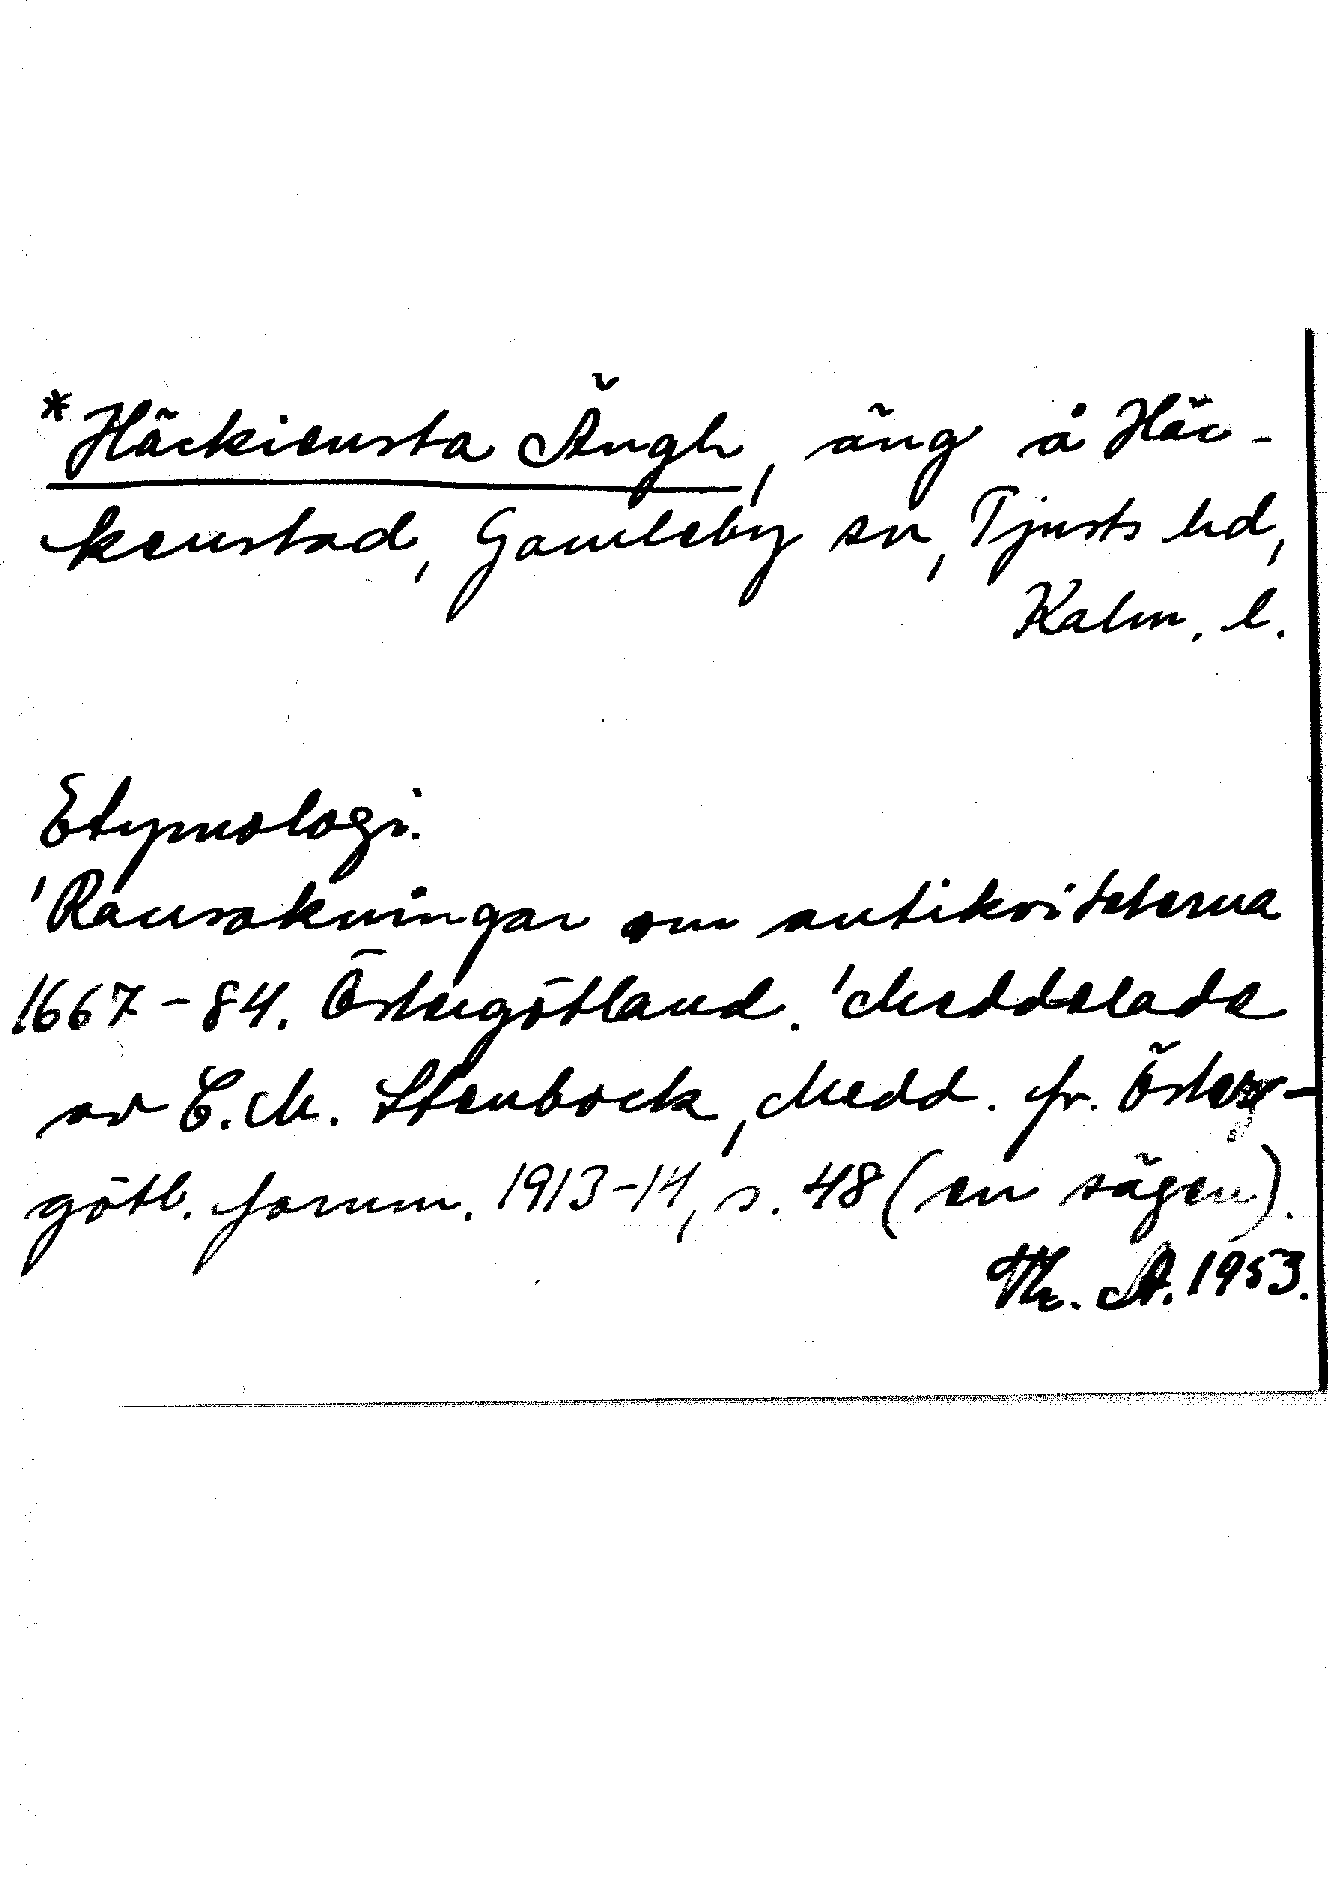 *Häckiensta Ängh, äng å Häc-
kenstad, Gamleby sn, Tjusts hd,
Kalm. l.
Etymologi.
'Ransakningar om antikviteterna
1667-84. Östergötland.' Meddelade
av C. M. Stenbock, Medd. fr. Öster-
götl. fornm. 1913-14, s. 48 (en sägen).
Th. A. 1953.